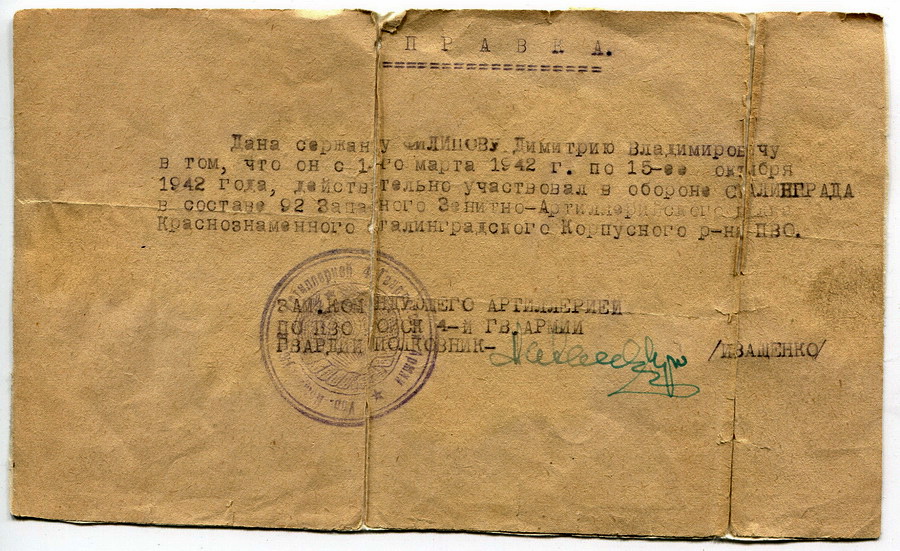 ПРАВКА.
Дана сержанту ФИЛИПОВУ Димитрию Владимировичу
в том, что он с 1-го марта 1942 г. по 15-ее октября
1942 года, действительно участвовал в обороне СТАЛИНГРАДА
в составе 92 Запасного Зенитно-Артиллерийского полка
Краснознаменного Сталинградского Корпусного р-на ПВО.
ЗАМ.КОМАНДУЮЩЕГО АРТИЛЛЕРИЕЙ
ПО ПВО ВОЙСК 4-й ГВ.АРМИИ
ГВАРДИИ ПОЛКОВНИК- /ИВАЩЕНКО/